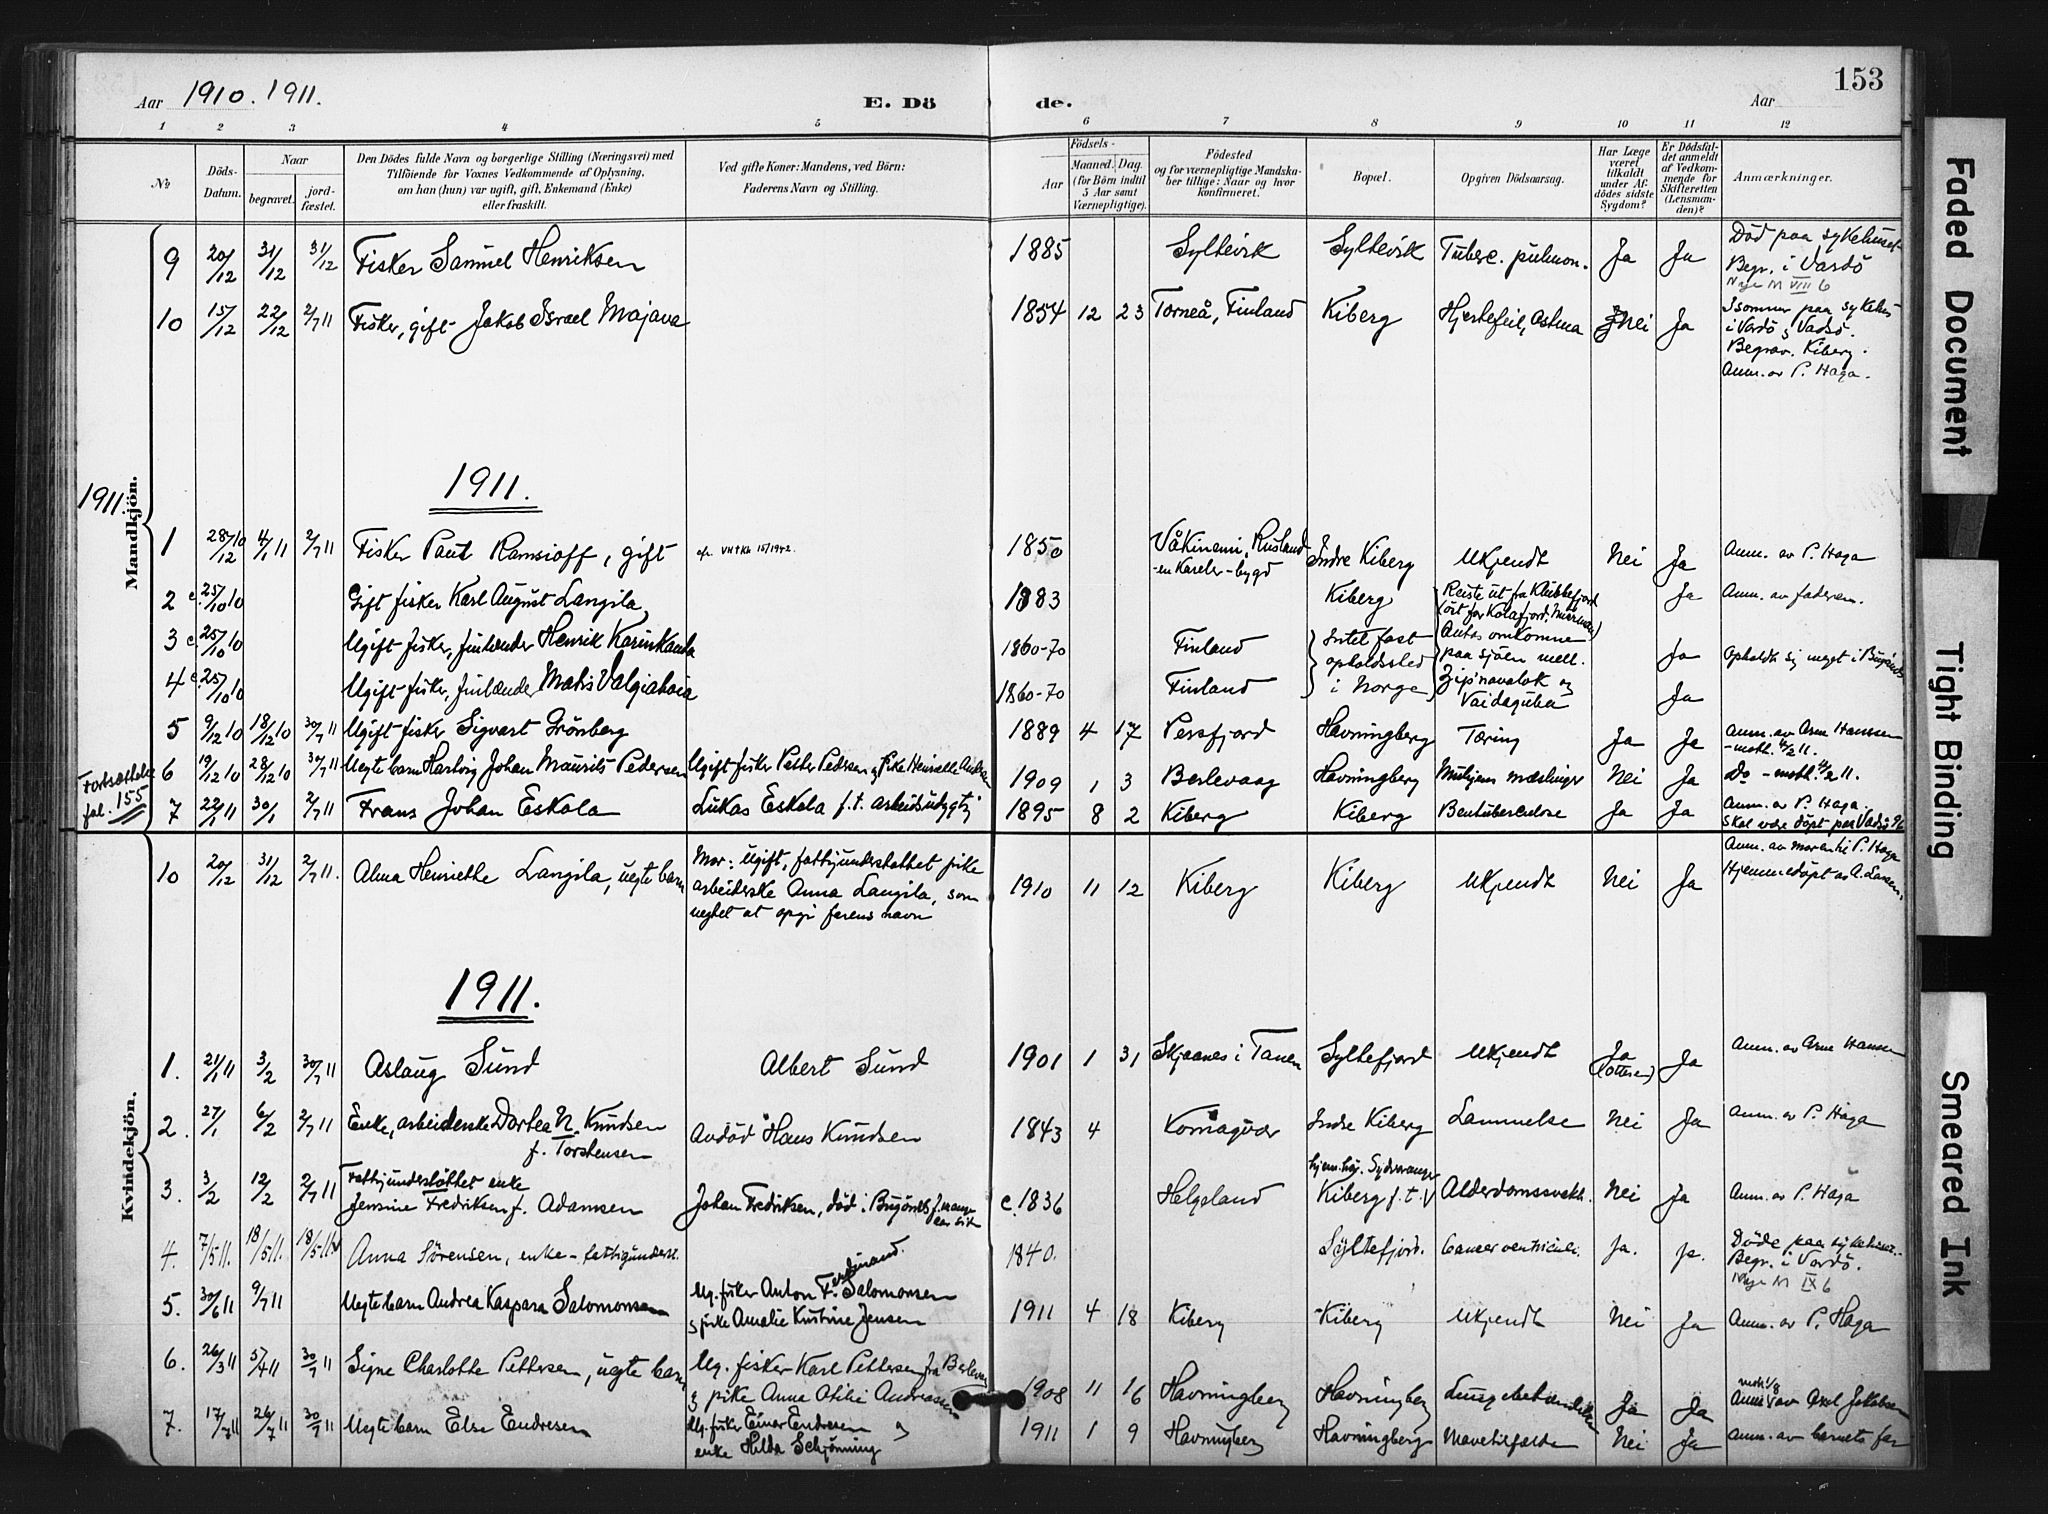 Aar 1910. 1911.
E. Dö
de.
Aar
153
1 2 3 4 5 6 7 8 9 10 11 12
№
Döds-
Datum.
Naar
begravet.
jord-
fæstet.
Den Dödes fulde Navn og borgerlige Stilling (Næringsvei) med
Tilföiende for Voxnes Vedkommende af Oplysning,
om han (hun) var ugift, gift, Enkemand (Enke)
eller fraskilt.
Ved gifte Koner: Mandens, ved Börn:
Faderens Navn og Stilling.
Födsels-
Aar
Maaned. Dag.
(for Börn indtil
5 Aar samt
Værnepligtige).
Födested
og for værnepligtige Mandska-
ber tillige: Naar og hvor
konfirmeret.
Bopæl.
Opgiven Dödsaarsag.
Har Læge
været
tilkaldt
under Af-
dödes sidste
Sygdom?
Er Dödsfal-
det anmeldt
af Vedkom-
mende for
Skifteretten
(Lensman-
den)?
Anmærkninger.
Mandkjön.
9 20/12 31/12 31/12 Fisker Samuel Henriksen 1885 Syltevik Syltevik Tuberc. pulmon. Ja Ja Död paa sykehuset
Begr. i Vardö
Nye M VIII 6
10 15/12 22/12 2/7 11 Fisker, gift Jakob Israel Majava 1854 12 23 Torneå, Finland Kiberg Hjertefeil, Astma Nei Ja I sommer paa sykehus
i Vardö & Vadsö.
Begrav. Kiberg.
Anm. av P. Haga.
1911.
1911.
1 28/12 10 4/1 11 2/7 11 Fisker Paul Ramsioff, gift 1850 Våkinemi, Rusland
-en Kareler-bygd Indre Kiberg Ukjendt Nei Ja Anm. av P. Haga
2 c. 25/10 10 Gift fisker Karl August Langila 1883 Kiberg Reiste ut fra Klubbefjord Ja Anm. av faderen.
(öst for Kolafjord, Murman)
3 c. 25/10 10 Ugift fisker, finlænder Henrik Karinkanta 1860-70 Finland Intet fast Antas omkomne Ja Opholdt sig meget i Bugönes
opholdssted paa sjöen mell.
4 c. 25/10 10 Ugift fisker, finlænder Matis Valgiakoia 1860-70 Finland i Norge Zipnavalok og Ja
Vaidaguba
5 9/12 10 18/12 10 30/7 11 Ugift fisker Sigvart Grönberg 1889 4 17 Persfjord Havningberg Tæring Ja Ja Anm. av Arne Hanssen
-mott. 4/2 11.
6 19/12 10 28/12 10 30/7 11 Uegte barn Hartvig Johan Maurits Pedersen Ugift fisker Petter Pedersen & Pike Henriette 1909 1 3 Berlevaag Havningberg Meslinger Nei Ja Do -mott. 4/2 11.
Fortsættelse
fol. 155
7 22/1 11 30/1 2/7 11 Frans Johan Eskola Lukas Eskola f.t. arbeidsudygtig 1895 8 2 Kiberg Kiberg Bentuberculose Ja Ja Anm. av P. Haga.
Skal være döpt paa Vadsö 96
Kvindekjön.
10 20/12 31/12 2/7 11. Alma Henriethe Langila, uegte barn Mor: ugift, fattigunderstøttet pike
arbeiderske Anna Langila, som
negtet at opgi farens navn 1910 11 12 Kiberg Kiberg Ukjendt Nei Ja Anm. av moren til P. Haga
Hjemmedöpt av A. Larsen.
1911.
1. 21/1 11 3/2 30/7 11 Aslaug Sund Albert Sund 1901 1 31 Skjaanes i Tanen Syltefjord Ukjendt Ja
(Ottesen) Ja Anm. av Arne Hansen
2. 27/1 6/2 2/7 11 Enke, arbeiderske Dortea N. Knudsen
f. Torstensen Avdöd Hans Knudsen 1843 4 Komagvær Indre Kiberg Lammelse Nei Ja Anm. av P. Haga
3. 3/2 12/2 2/7 11 Fattigunderstöttet enke
Jensine Fredriksen f. Adamsen Johan Fredriksen, död i Bugönes f. mange
aar sid. c. 1836 Helgeland hjem.hör. Sydvaranger
Kiberg f.t. Alderdomssvakh. Nei Ja Anm. av P. Haga
4. 7/5 11. 18/5 11. 18/5 11. Anna Sörensen, enke - fattigunderst. 1840. Syltefjord. Cancer ventriculi. Ja. Ja. Döde paa sykehuset.
Begr. i Vardö.
Nye M IX 6
5. 30/6 11 9/7 11 Uegte barn Andrea Kaspara Salomonsen Ug. fisker Anton Ferdinand. Salomonsen
& pike Amalie Kristine Jensen 1911 4 18 Kiberg Kiberg Ukjendt Nei Ja Anm. av P. Haga
6. 26/3 11 5/4 11 30/7 11 Signe Charlotte Pettersen, uegte barn Ug. fisker Karl Pettersen fra Berlevaag
& pike Anna Otilie Andreassen 1908 11 16 Havningberg Havningberg Lungebetændelse Ja Ja mott. 1/8
Anm. av Axel Jakobsen
7. 17/7 11 26/7 11 30/7 11 Uegte barn Else Endresen Ug. fisker Einar Endresen &
enke Hilda Schjönning 1911 1 9 Havningberg Havningberg Mavetilfælde Nei Ja Anm. av barnets far
Faded Document
Tight Binding
Smeared Ink